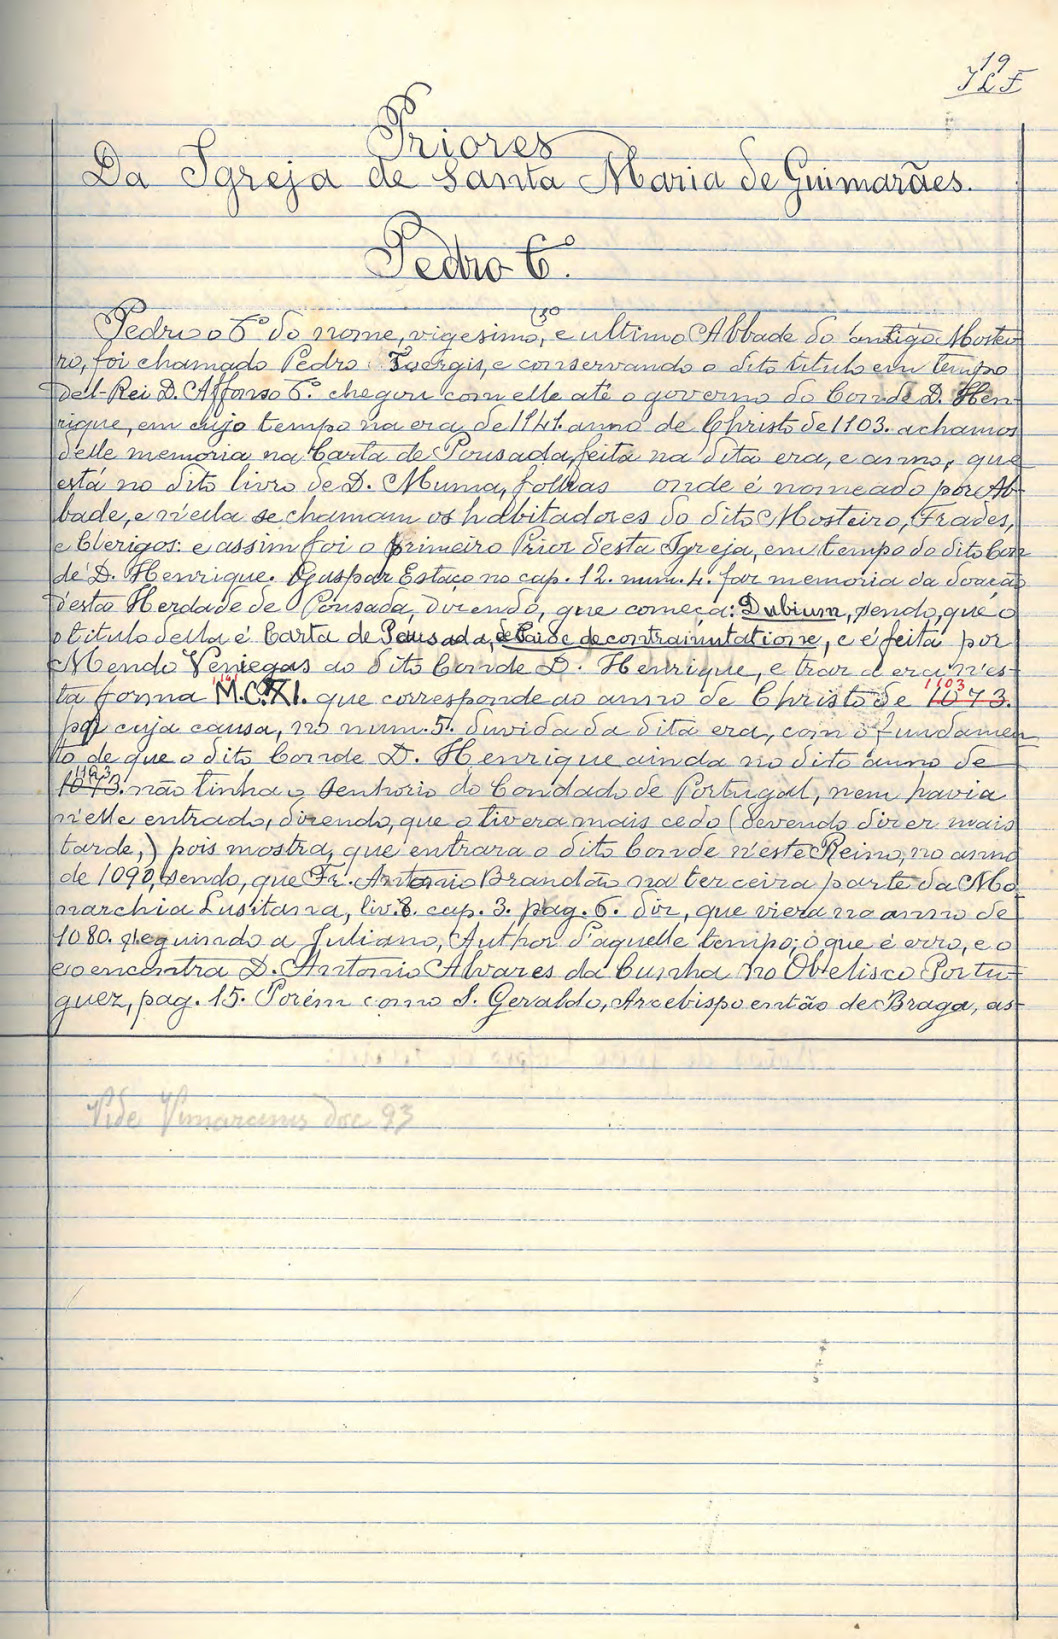 19
JLF
Priores
Da Igreja de Santa Maria de Guimarães.
Pedro 6.º
Pedro o 6.º do nome, vigesimo, (3º e ultimo Abbade do antigo Mostei-
ro, foi chamado Pedro Tuergis, e conservando o dito titulo em tempo
del-Rei D. Affonso 6.º chegou com elle até o governo do Conde D. Hen-
rique, em cujo tempo na era de 1141. anno de Christo de 1103. achamos
delle memoria na Carta de Pousada, feita na dita era, e anno, que
está no dito livro de D. Muma, folhas onde é nomeado por Ab-
bade, e n'ella se chamam os habitadores do dito Mosteiro, Frades,
e Clerigos: e assim foi o primeiro Prior desta Igreja, em tempo do dito Con-
de D. Henrique. Gaspar Estaço no cap. 12. num. 4. faz memoria da doação
d'esta Herdade de Pousada, dizendo, que começa: Dubium, sendo, que o
o titulo della é Carta de Pausada, de contramutatione, e é feita por
Mendo Veniegas ao dito Conde D. Henrique, e traz a era n'es-
ta forma M.C.XI. que corresponde ao anno de Christo de 1103 1073.
por cuja causa, no num. 5. duvida da dita era, com o fundamen-
to de que o dito Conde D. Henrique ainda no dito anno de
1103 1073. não tinha o Senhorio do Condado de Portugal, nem havia
n'elle entrado, dizendo, que o tivera mais cedo (devendo dizer mais
tarde,) pois mostra, que entrara o dito Conde n'este Reino, no anno
de 1090, sendo, que Fr. Antonio Brandão na terceira parte da Mo-
narchia Lusitana, liv. 8. cap. 3. pag. 6. diz, que viera no anno de
1080. seguindo a Juliano, Author d'aquelle tempo; o que é erro, e o
e o encontra D. Antonio Alvares da Cunha no Obelisco Portu-
guez, pag. 15. Porém como S. Geraldo, Arcebispo então de Braga, as-
Vide Vimaranis doc. 93